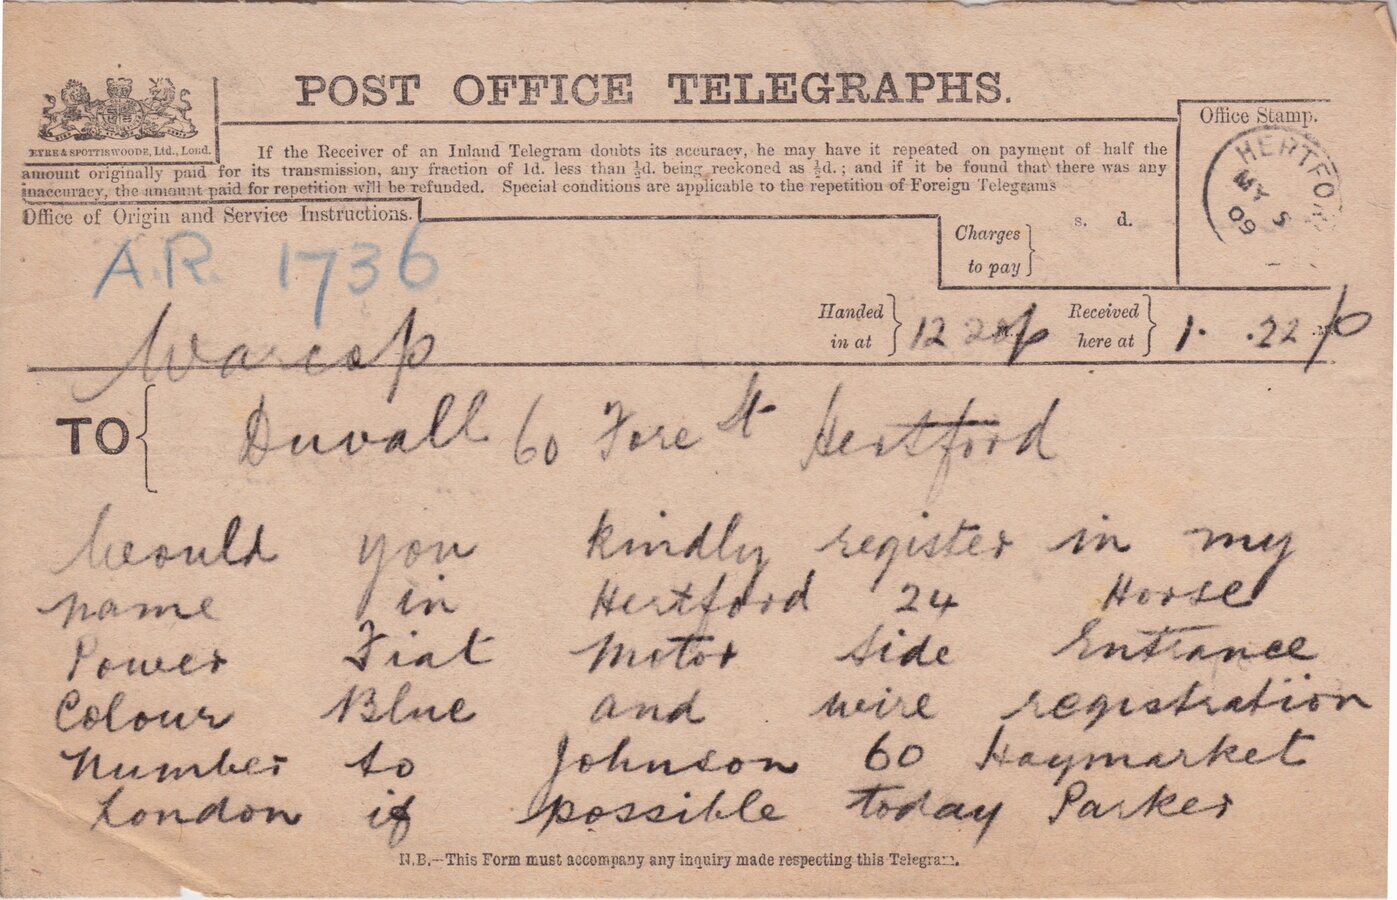 POST OFFICE TELEGRAPHS.
EYRE & SPOTTISWOODE, Ltd., Lond.
If the Receiver of an Inland Telegram doubts its accuracy, he may have it repeated on payment of half the
amount originally paid for its transmission, any fraction of 1d. less than ½d. being reckoned as ½d.; and if it be found that there was any
inaccuracy, the amount paid for repetition will be refunded. Special conditions are applicable to the repetition of Foreign Telegrams
Office Stamp.
HERTFO
MY 5
09
Office of Origin and Service Instructions.
Charges to pay } s. d.
A.R. 1736
Warcop
Handed in at } 12 20 p
Received here at } 1. .22 p
TO { Duvall 60 Fore St Hertford
Would you kindly register in my
name in Hertford 24 Horse
Power Fiat Motor Side Entrance
Colour Blue and wire registration
Number to Johnson 60 Haymarket
London if possible today Parker
N.B.—This Form must accompany any inquiry made respecting this Telegram.